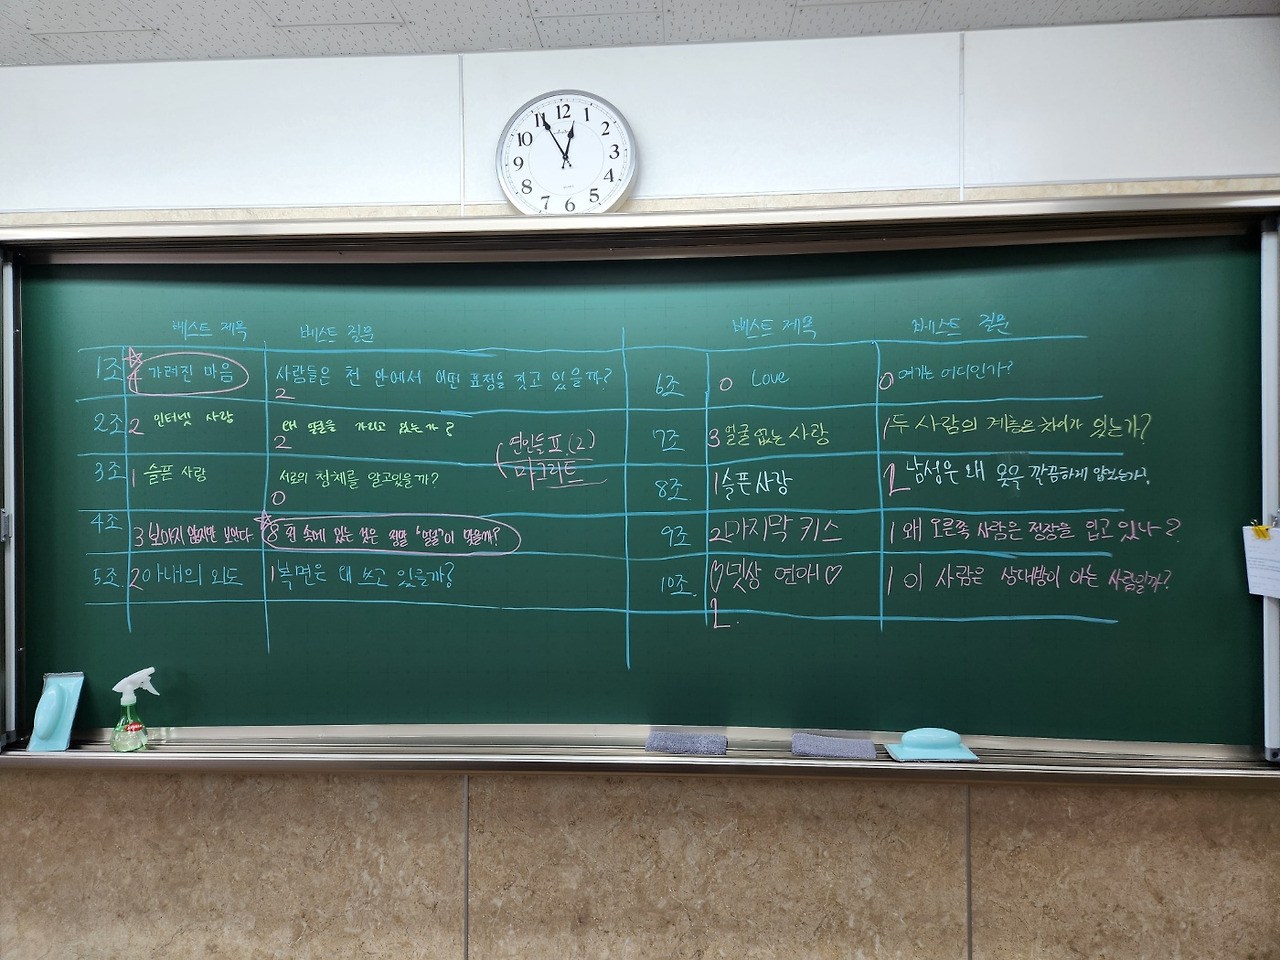 12
1
2
3
4
5
6
7
8
9
10
11
베스트 제목 베스트 질문
1조 가려진 마음 사람들은 천 안에서 어떤 표정을 짓고 있을까?
2
2조 2 인터넷 사랑 왜 얼굴을 가리고 있는가?
2
3조 1 슬픈 사랑 서로의 정체를 알고있을까?
0
연인들 표.(2)
마그리트
4조 3 보이지 않지만 보인다 8 천 속에 있는 것은 정말 '얼굴'이 맞을까?
5조 2 아내의 외도 1 복면은 왜 쓰고 있을까?
베스트 제목 베스트 질문
6조 0 Love 0 여기는 어디인가?
7조 3 얼굴 없는 사랑 1 두 사람의 계층은 차이가 있는가?
8조 1 슬픈 사랑 2 남성은 왜 옷을 깔끔하게 입었는가?
9조 2 마지막 키스 1 왜 오른쪽 사람은 정장을 입고 있나?
10조 ♡넷상 연애♡ 1 이 사람은 상대방이 아는 사람일까?
2